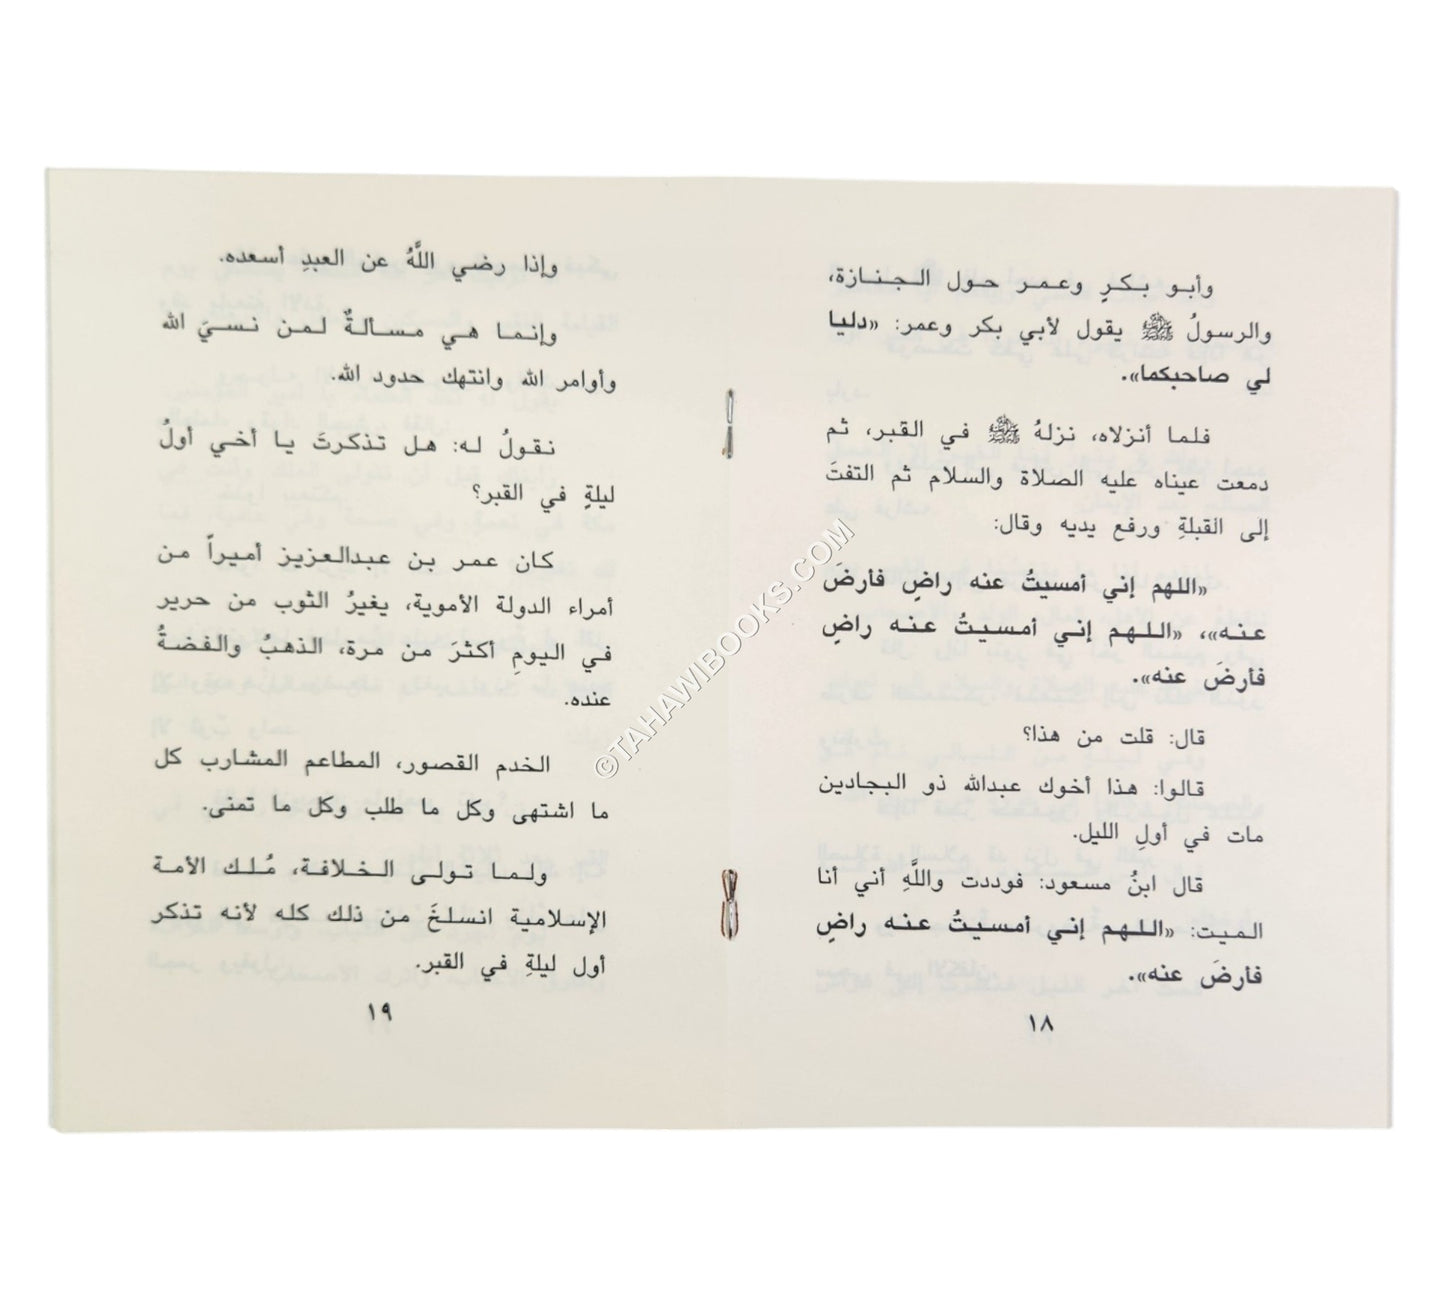 وأبو بكرٍ وعمر حول الجنازة،
والرسولُ ﷺ يقول لأبي بكر وعمر: «دليا
لي صاحبكما».
فلما أنزلاه، نزلهُ ﷺ في القبر، ثم
دمعت عيناه عليه الصلاة والسلام ثم التفتَ
إلى القبلةِ ورفع يديه وقال:
«اللهم إني أمسيتُ عنه راضٍ فأرضَ
عنه»، «اللهم إني أمسيتُ عنه راضٍ
فأرضَ عنه».
قال: قلت من هذا؟
قالوا: هذا أخوك عبدالله ذو البجادين
مات في أولِ الليل.
قال ابنُ مسعود: فوددت واللَّهِ أني أنا
الميت: «اللهم إني أمسيتُ عنه راضٍ
فأرضَ عنه».
١٨
وإذا رضي اللَّهُ عن العبدِ أسعده.
وإنما هي مسألةٌ لمن نسيَ الله
وأوامر الله وانتهك حدود الله.
نقولُ له: هل تذكرتَ يا أخي أولُ
ليلةٍ في القبر؟
كان عمر بن عبدالعزيز أميراً من
أمراء الدولة الأموية، يغيرُ الثوب من حرير
في اليومِ أكثرَ من مرة، الذهبُ والفضةُ
عنده.
الخدم القصور، المطاعم المشارب كل
ما اشتهى وكل ما طلب وكل ما تمنى.
ولما تولى الخلافة، مُلك الأمة
الإسلامية انسلخَ من ذلك كله لأنه تذكر
أول ليلةِ في القبر.
١٩
©TAHAWIBOOKS.COM